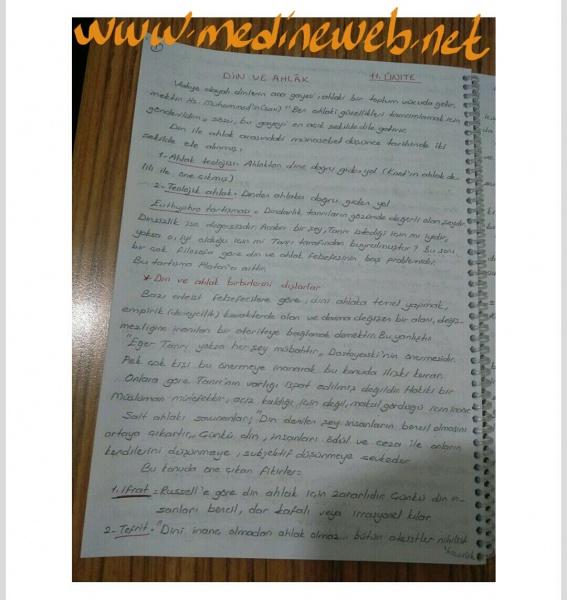 www.medineweb.net
1
DİN VE AHLÂK 11. ÜNİTE
Vahye dayalı dinlerin ana gayesi, ahlaki bir toplum vücuda getir-
mektir. Hz. Muhammed'in (sav) "Ben ahlaki güzellikleri tamamlamak için
gönderildim" sözü, bu gayeyi en açık şekilde dile getirir.
Din ile ahlak arasındaki münasebet düşünce tarihinde iki
şekilde ele alınmış:
1- Ahlak teolojisi: Ahlaktan dine doğru giden yol (Kant'ın ahlak de-
lili ile öne çıkmış)
2- Teolojik ahlak: Dinden ahlaka doğru giden yol
Euthyphro tartışması = Dindarlık tanrıların gözünde değerli olan şeydir.
Dinsizlik ise değersizdir. Acaba bir şey, Tanrı istediği için mi iyidir,
yoksa o, iyi olduğu için mi Tanrı tarafından buyrulmuştur? Bu soru
bir çok filozofa göre din ve ahlak felsefesinin baş problemidir.
Bu tartışma Platon'a aittir.
* Din ve ahlak birbirlerini dışlarlar
Bazı ateist felsefecilere göre, dini ahlaka temel yapmak,
empirik (deneycilik) karakterde olan ve daima değişen bir alanı, değiş-
mezliğine inanılan bir otoriteye bağlamak demektir. Bu yanlıştır.
"Eğer Tanrı yoksa her şey mübahtır" Dostoyevski'nin önermesidir.
Pek çok kişi bu önermeye inanarak bu konuda ilişki kurar.
Onlara göre Tanrı'nın varlığı ispat edilmiş değildir. Hakiki bir
Müslüman mütefekkir, aciz kaldığı için değil, makul gördüğü için inanır.
Salt ahlakı savunanlar; "Din denilen şey insanların bencil olmasını
ortaya çıkartır" Çünkü din, insanları ödül ve ceza ile onların
kendilerini düşünmeye, subjektif düşünmeye sevkeder.
Bu konuda öne çıkan fikirler=
1. İfrat = Russell'e göre din ahlak için zararlıdır. Çünkü din in-
sanları bencil, dar kafalı veya irrasyonel kılar
2- Tefrit = "Dini inanç olmadan ahlak olmaz... bütün ateistler nihilist